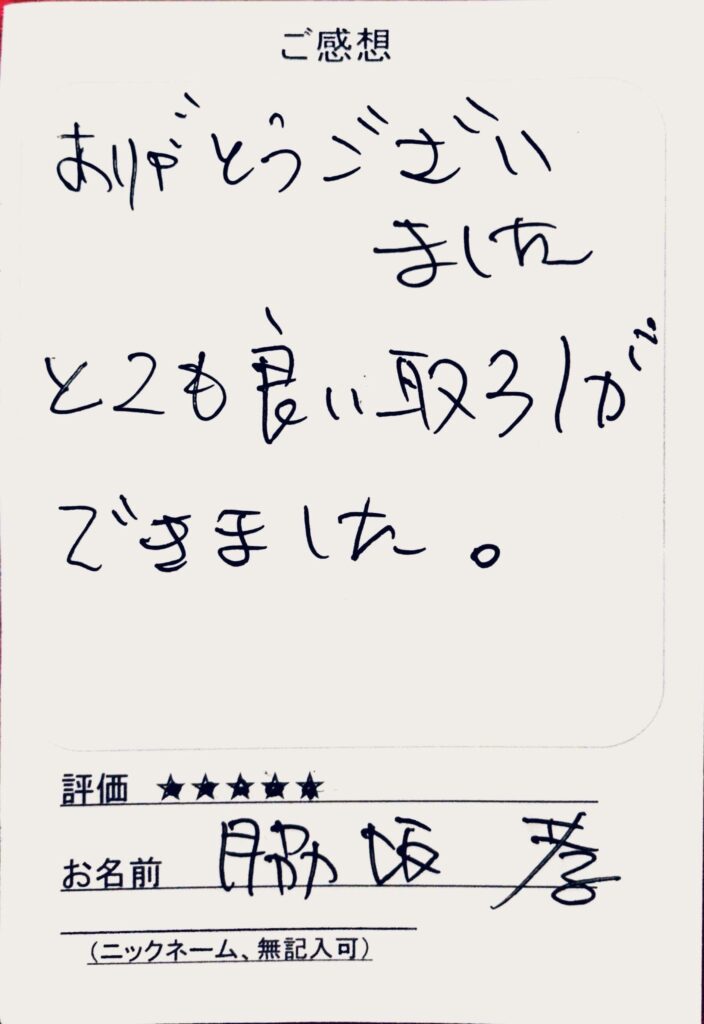 ご感想
ありがとうござい
ました
とても良い取引が
できました。
評価 ★★★★★
お名前 脇坂 孝
(ニックネーム、無記入可)